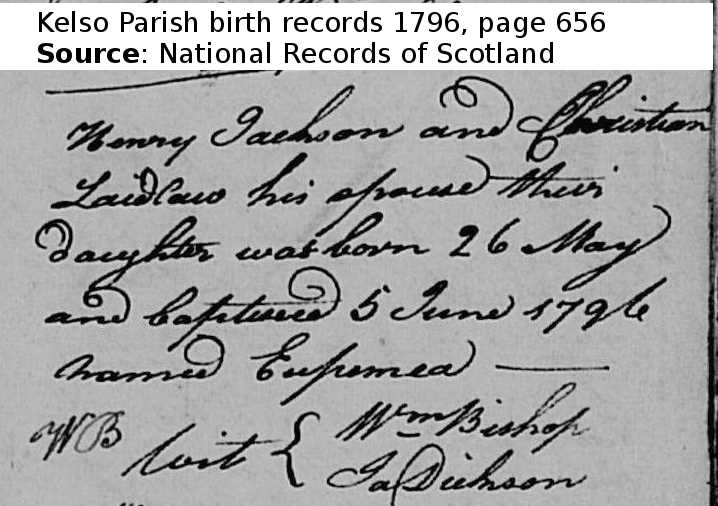 Kelso Parish birth records 1796, page 656
Source: National Records of Scotland
Henry Jackson and Christian
Laidlaw his spouse their
daughter was born 26 May
and baptised 5 June 1796
named Eupemea
WB wit { Wm Bishop
Ja Dickson